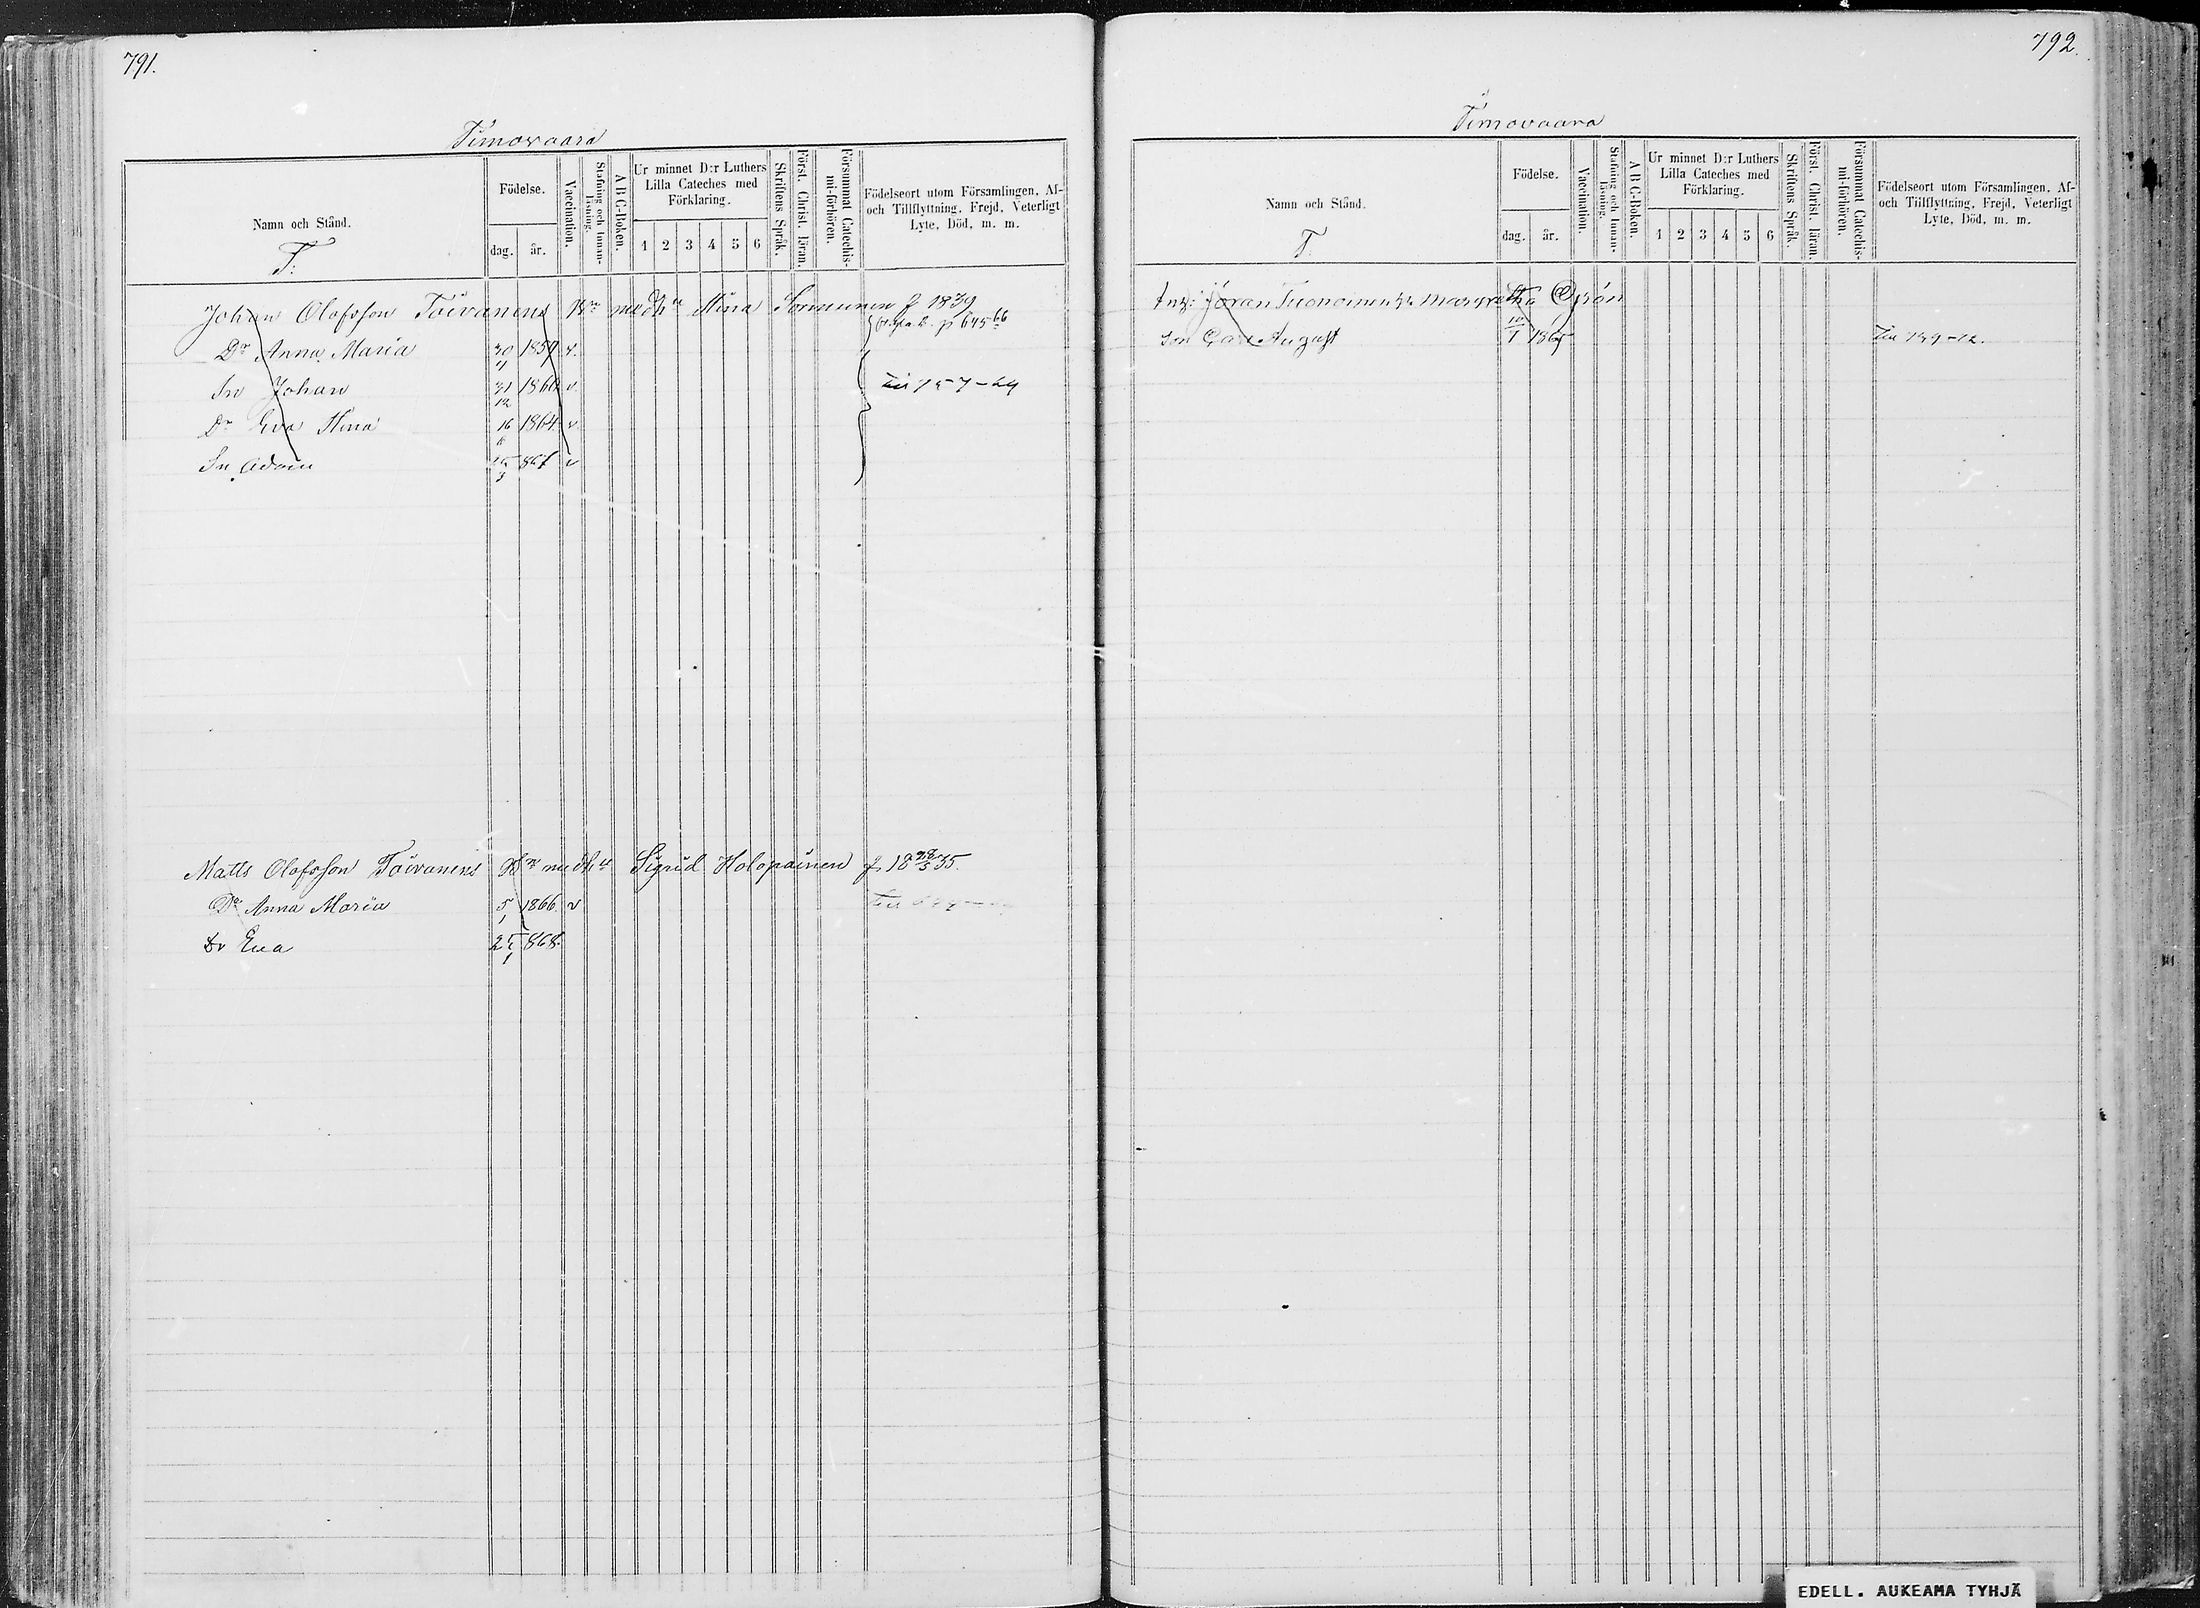 791.
Timovaara
Namn och Stånd.
T.
Födelse.
dag. år.
Vaccination.
Stafning och Innan-läsning.
A B C-Boken.
Ur minnet D:r Luthers Lilla Cateches med Förklaring.
1 2 3 4 5 6
Skriftens Språk.
Först. Christ. läran.
Försummat Catechis-mi-förhören.
Födelseort utom Församlingen, Af- och Tillflyttning, Frejd, Veterligt Lyte, Död, m. m.
Johan Olofsson Toivanens Bn med hu Stina Sormunen f 1839
p 645 66
Dr Anna Maria 30 1859 v.
Sn Johan 31/12 1860 v. till 757-69
Dr Eva Stina 16 1864 v.
Sn Adam 867 v
Matts Olofsson Toivanens Bn med hu Sigrid Holopainen f 18 28/3 35.
Dr Anna Maria 5/1 1866 v
Dr Eva 868
792.
Timovaara
Namn och Stånd.
T.
Födelse.
dag. år.
Vaccination.
Stafning och Innan-läsning.
A B C-Boken.
Ur minnet D:r Luthers Lilla Cateches med Förklaring.
1 2 3 4 5 6
Skriftens Språk.
Först. Christ. läran.
Försummat Catechis-mi-förhören.
Födelseort utom Församlingen, Af- och Tillflyttning, Frejd, Veterligt Lyte, Död, m. m.
Jöran Tuononen h. Margretha Grön
son Carl August 10/1 till 799-72.
EDELL. AUKEAMA TYHJÄ